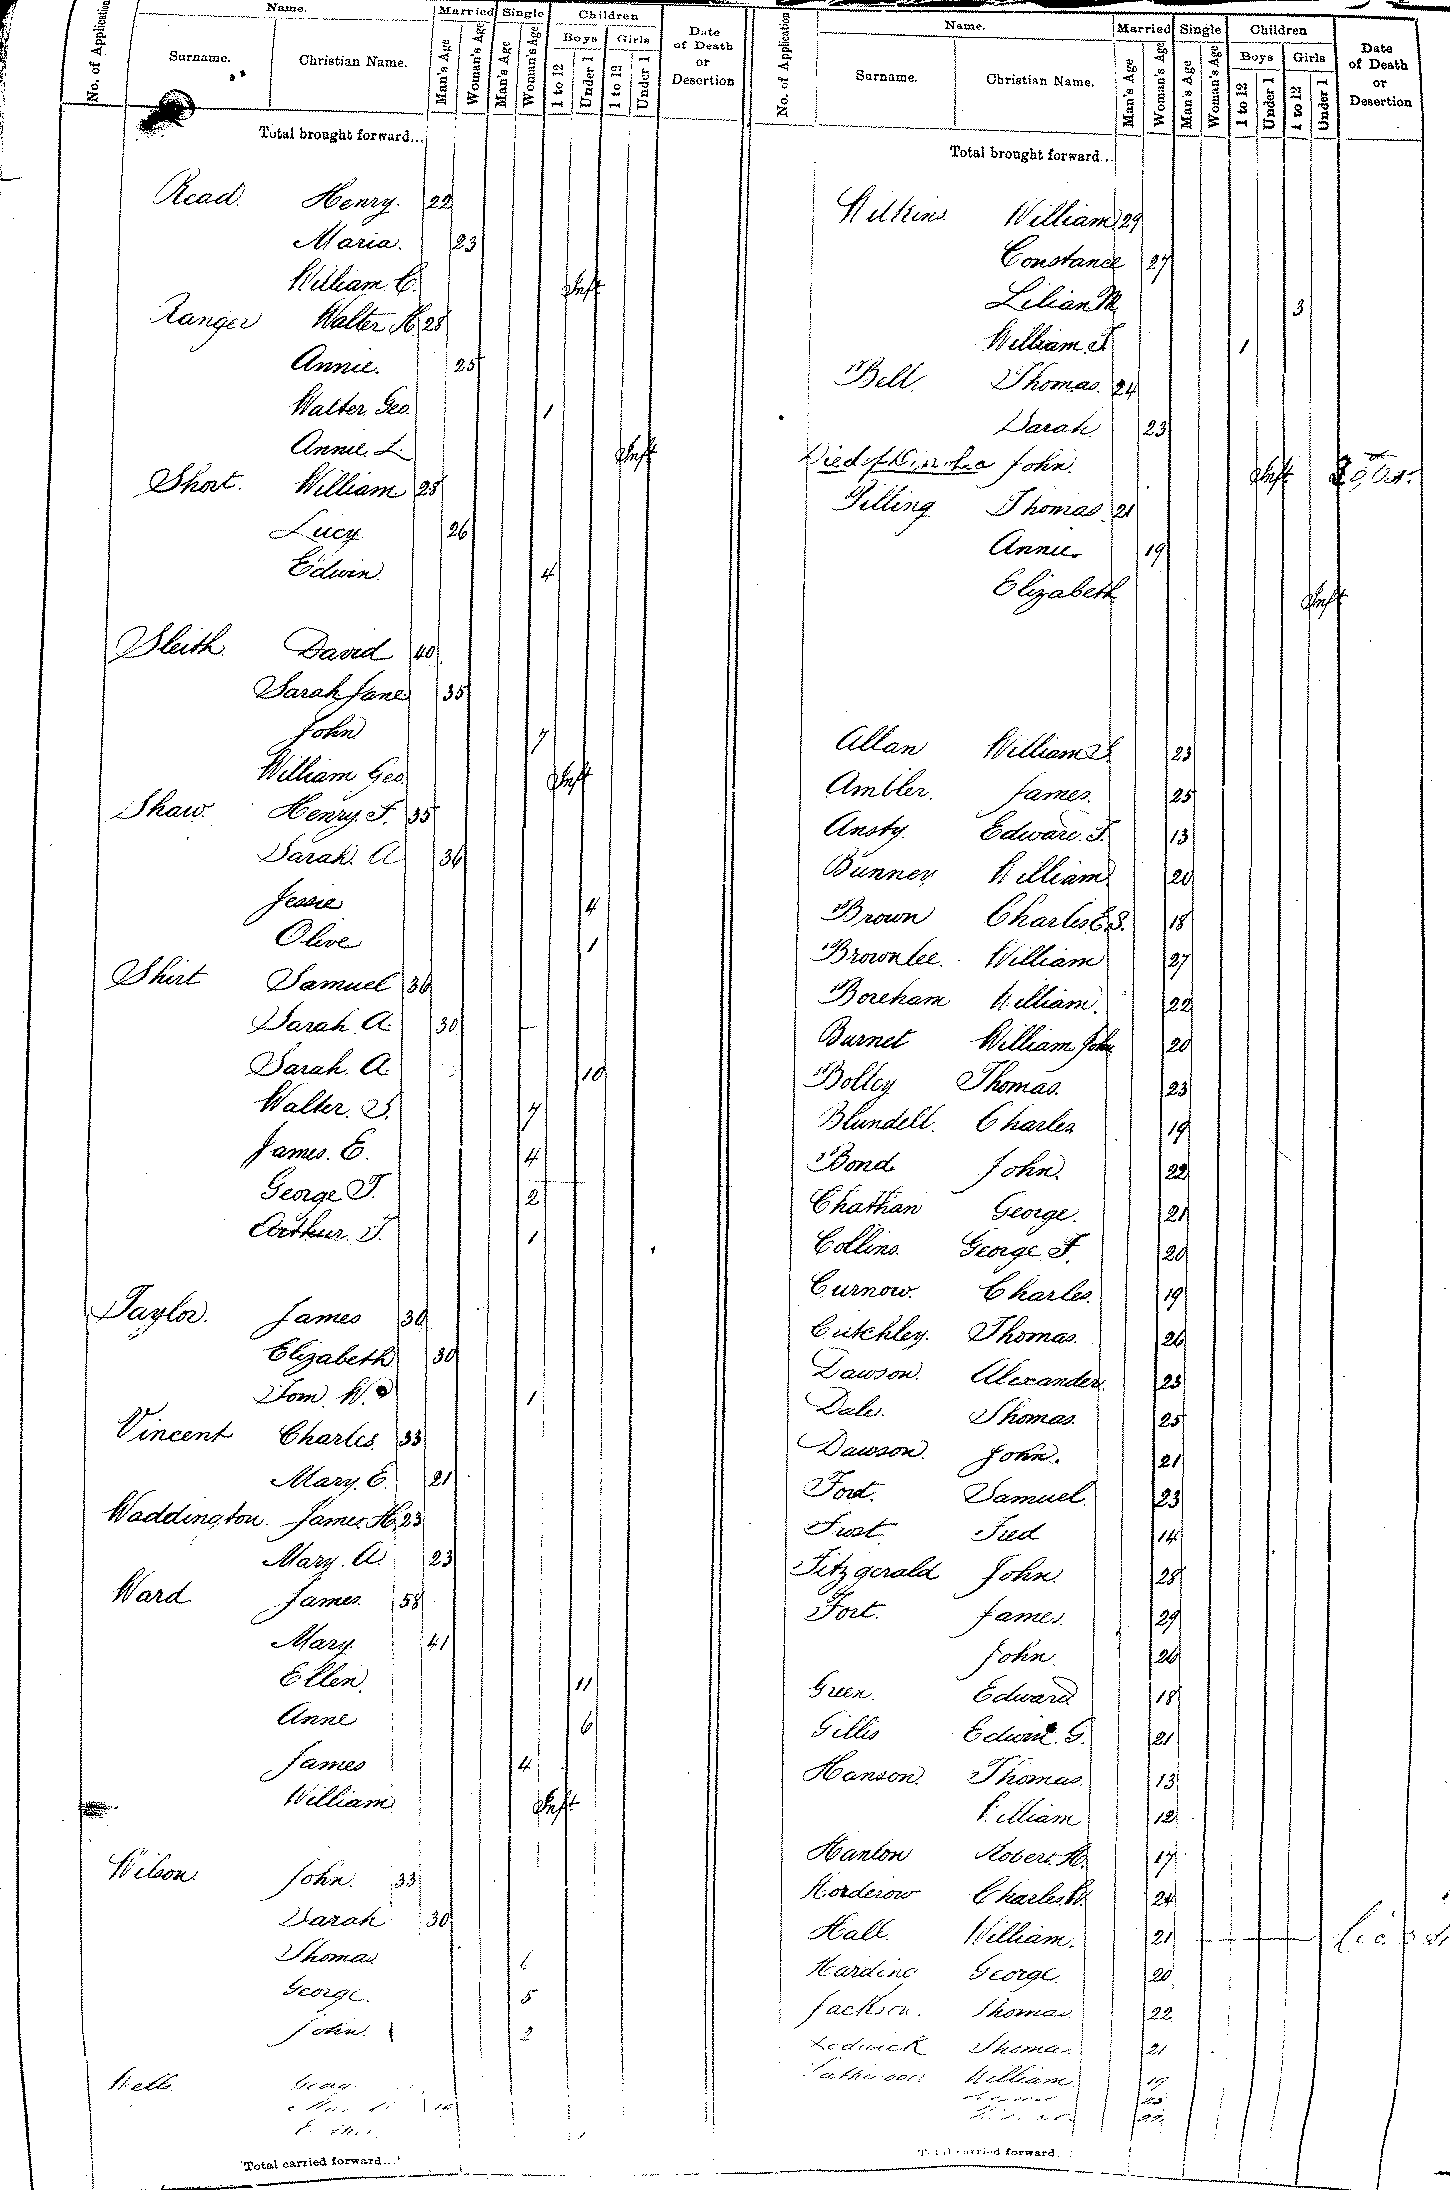 No. of Application
Name.
Married
Single
Children
Surname.
Christian Name.
Man's Age
Woman's Age
Man's Age
Woman's Age
Boys
Girls
1 to 12
Under 1
1 to 12
Under 1
Date of Death or Desertion
Total brought forward...
Read. Henry. 22
Maria. 23
William C. Inft
Ranger Walter H. 28
Annie. 25
Walter Geo. 1
Annie L. Inft
Short. William 28
Lucy 26
Edwin. 4
Sleith. David 40
Sarah Jane 35
John 7
William Geo. Inft
Shaw. Henry. F. 35
Sarah. A 36
Jessie 4
Olive 1
Shirt Samuel 36
Sarah A. 30
Sarah. A. 10
Walter. S. 7
James. E. 4
George T. 2
Arthur. T. 1
Taylor. James 30
Elizabeth 30
Tom. W. 1
Vincent Charles. 33
Mary. E. 21
Waddington. James. H. 23
Mary. A. 23
Ward James. 58
Mary. 41
Ellen. 11
Anne 6
James 4
William Inft
Wilson. John. 33
Sarah 30
Thomas
George. 5
John. 2
Wells
Total carried forward...
No. of Application
Name.
Married
Single
Children
Surname.
Christian Name.
Man's Age
Woman's Age
Man's Age
Woman's Age
Boys
Girls
1 to 12
Under 1
1 to 12
Under 1
Date of Death or Desertion
Total brought forward...
Wilkins. William 29
Constance 27
Lilian M 3
William. T. 1
Bell. Thomas. 24
Sarah. 23
Died of John. Inft
Tilling Thomas. 21
Annie. 19
Elizabeth Inft
Allan William S. 23
Ambler. James. 25
Ansty. Edward. T. 13
Bunney William. 20
Brown Charles E. S. 18
Brownlee. William 27
Boreham William. 22
Burnet William John 20
Bolley Thomas. 23
Blundell. Charles 19
Bond. John. 22
Chathan George. 21
Collins. George F. 20
Curnow. Charles. 19
Critchley. Thomas. 26
Dawson. Alexander. 23
Dale. Thomas. 25
Dawson. John. 21
Ford. Samuel. 23
Fred 14
Fitzgerald John. 28
Fort. James. 29
John. 26
Green. Edward 18
Gillis Edwin. G. 21
Hanson. Thomas. 13
William 12
Hanlon Robert. H. 17
Charles. W. 24
Hall. William. 21
Harding George. 20
Jackson. Thomas. 22
Thomas. 21
William. 19
Total carried forward...